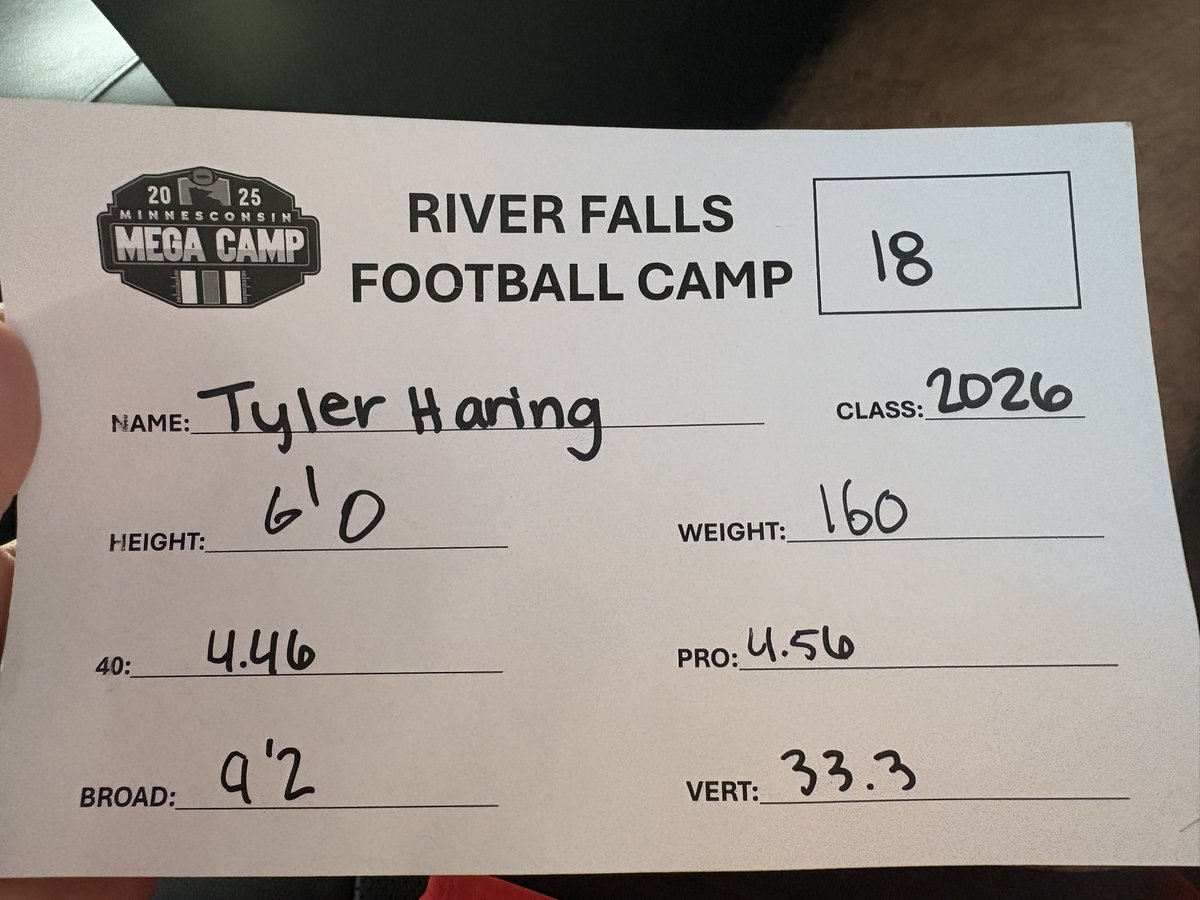 20 25
MINNESCONSIN
MEGA CAMP
RIVER FALLS
FOOTBALL CAMP
18
NAME: Tyler Haring
CLASS: 2026
HEIGHT: 6'0
WEIGHT: 160
40: 4.46
PRO: 4.56
BROAD: 9'2
VERT: 33.3